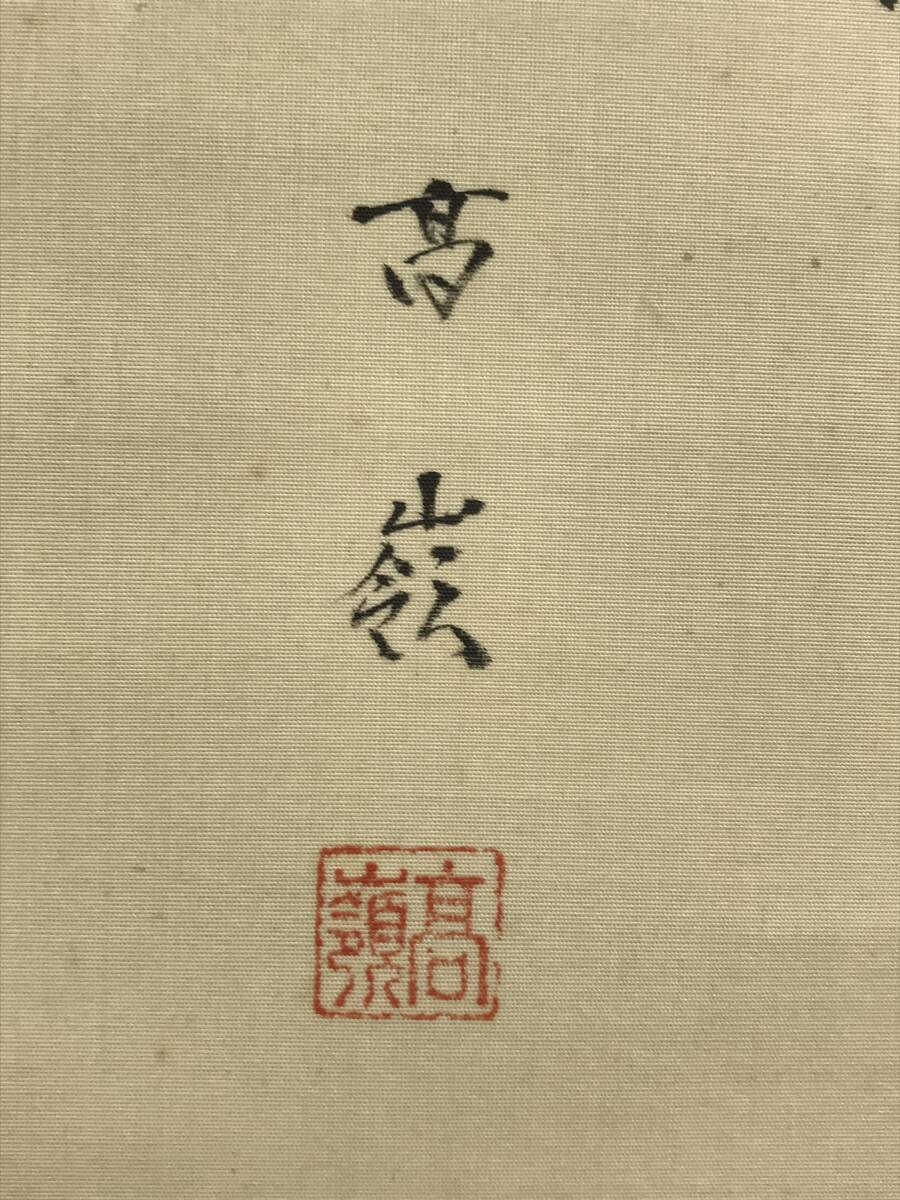 高嶺
高嶺